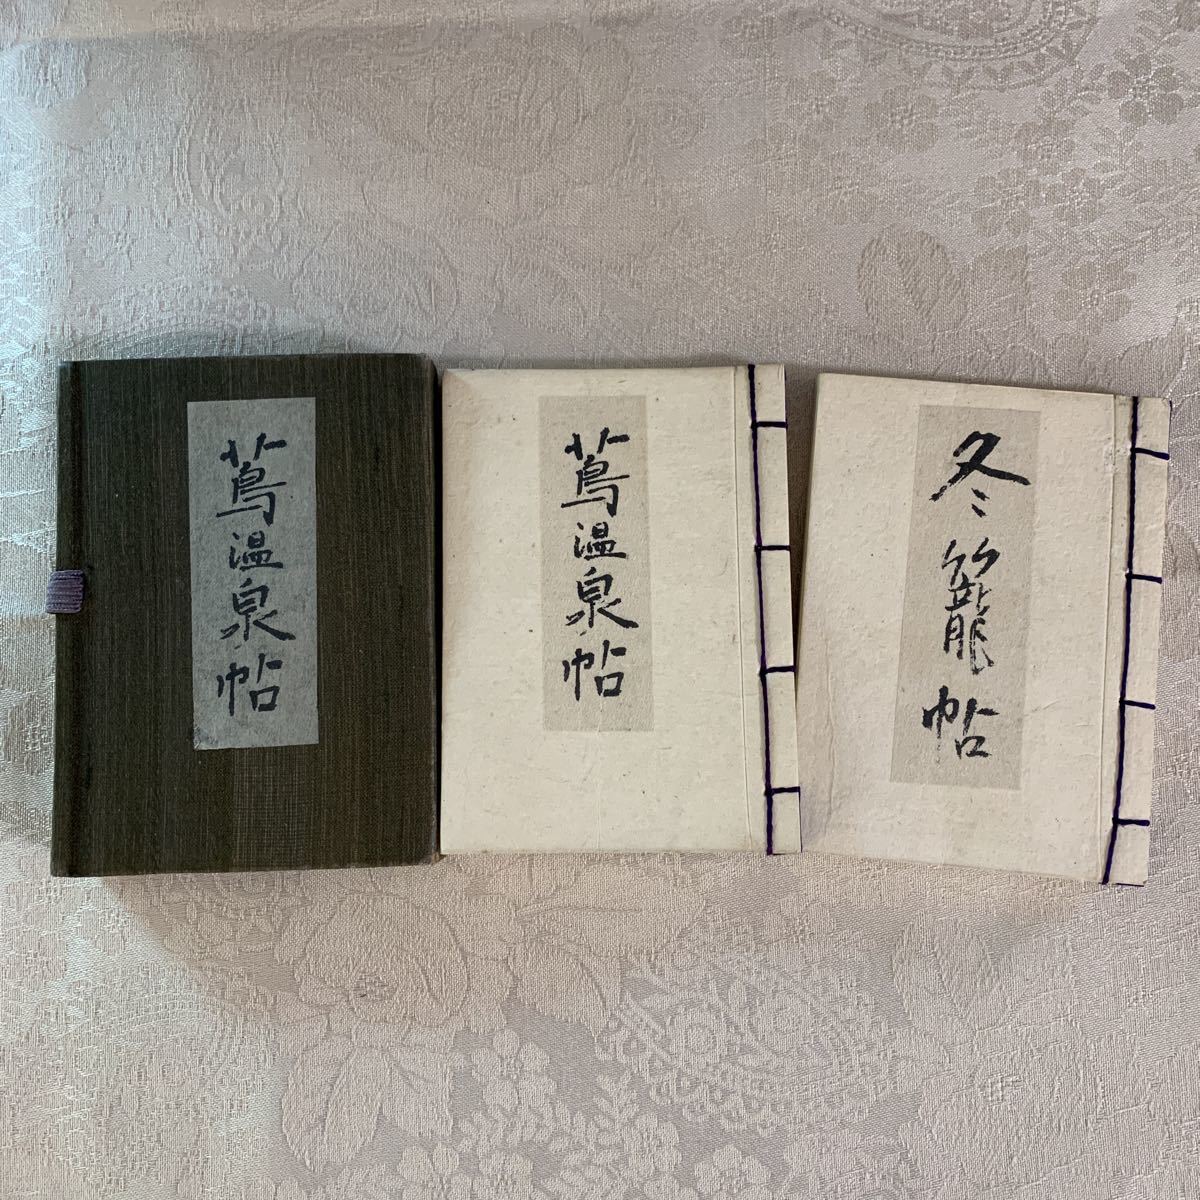 蔦温泉帖
蔦温泉帖
冬籠帖